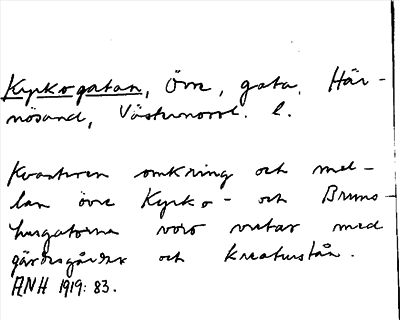 Kyrkogatan, Övre, gata, Här-
nösand, Västernorrl. l.
Kvarteren omkring och mel-
lan övre Kyrko- och Bruns-
husgatorna voro vretar med
gärdesgårdar och kreatursstån.
ÅNH 1919: 83.